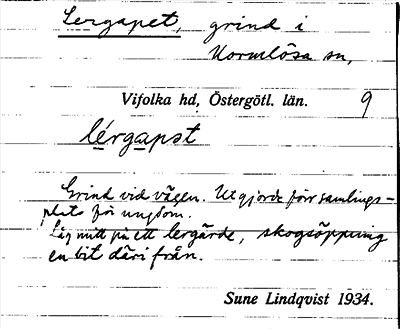 Lergapet, grind i
Normlösa sn,
Vifolka hd, Östergötl. län. 9
lérgapet
Grind vid vägen. Utgjorde förr samlings-
plats för ungdom.
Låg mitt på ett lergärde, skogsöppning
en bit därifrån.
Sune Lindqvist 1934.